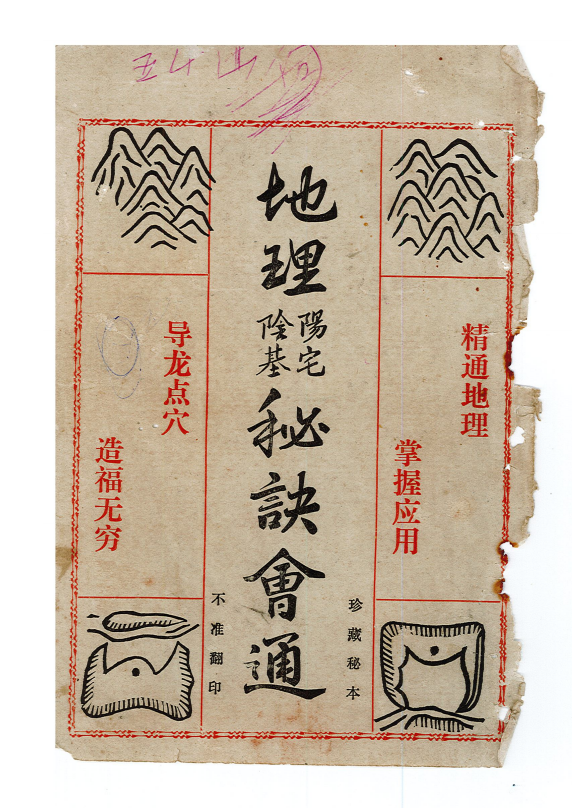 精通地理
掌握应用
地理
陽宅
陰基
秘訣會通
珍藏秘本
不准翻印
导龙点穴
造福无穷